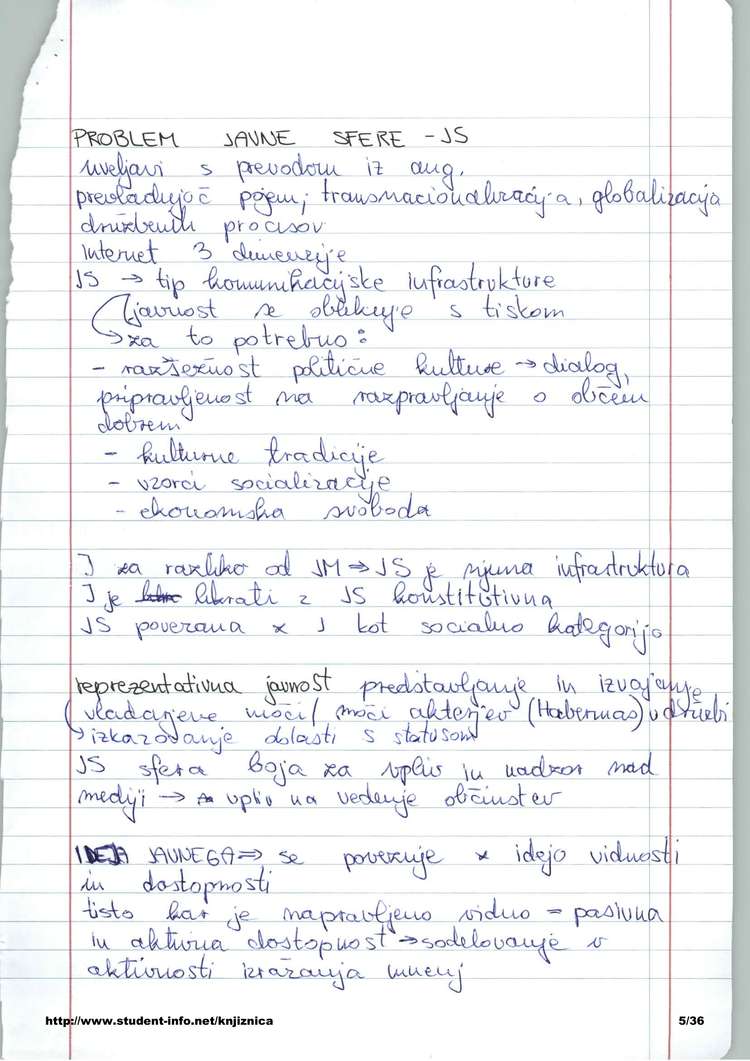 PROBLEM JAVNE SFERE - JS
uveljavi s prevodom iz ang.
prevladujoč pojem; transnacionalizacija, globalizacija
družbenih procesov
Internet 3 dimenzije
JS → tip komunikacijske infrastrukture
javnost se oblikuje s tiskom
→ za to potrebno:
- razširenost politične kulture → dialog,
pripravljenost na razpravljanje o občem
dobrem
- kulturne tradicije
- vzorci socializacije
- ekonomska svoboda
J za razliko od JM ⇒ JS je njuna infrastruktura
J je liberati z JS konstitutivna
JS povezana x J kot socialno kategorijo
reprezentativna javnost predstavljanje in izvajanje
vladarjeve moči / moči akterjev (Habermas) v družbi
→ izkazovanje oblasti s statusom
JS sfera boja za vpliv in nadzor nad
mediji → vpliv na vedenje občinstev
IDEJA JAVNEGA ⇒ se povezuje x idejo vidnosti
in dostopnosti
tisto kar je napravljeno vidno = pasivna
in aktivna dostopnost → sodelovanje v
aktivnosti izražanja mnenj
http://www.student-info.net/knjiznica 5/36